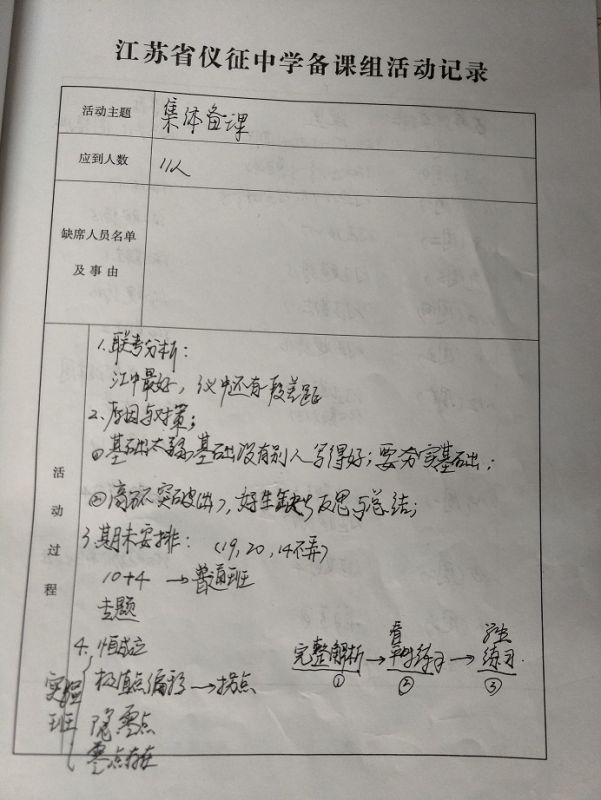 江苏省仪征中学备课组活动记录
活动主题 集体备课
应到人数 11人
缺席人员名单
及事由
活动过程
1.联考分析:
江中最好,仪中还有一段差距
2.原因与对策;
①基础太弱,基础没有别人写得好;要夯实基础;
②高分不突破(出),好生缺少反思与总结;
3.期末安排: (19,20,14不弄)
10+4 →普通班
专题
4. 恒成立
实验班 极值点偏移→拐点
隐零点
零点存在
完整解析→ 练习→ 学生练习.
① ② ③